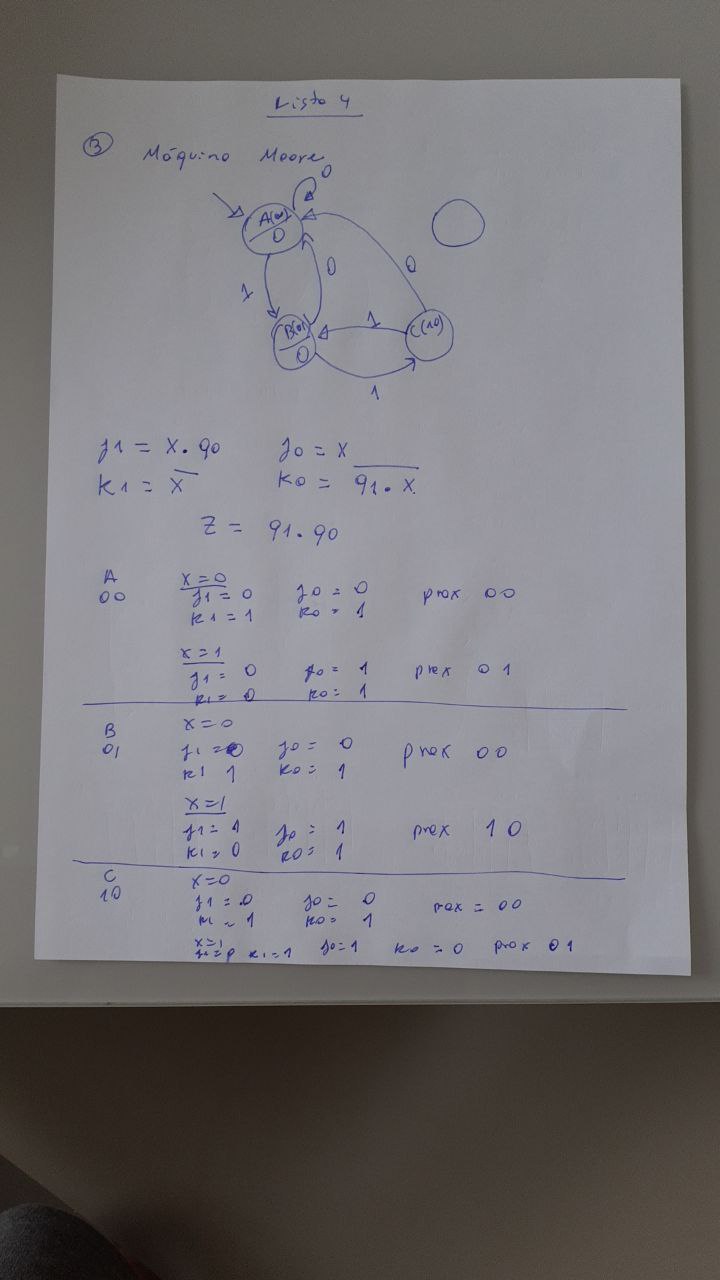 Lista 4
3 Máquina Moore
0
A(00)
0
1 0 0
B(01) 1 C(10)
0
1
J1 = X . q0 J0 = X
K1 = X̅ K0 = \overline{q1 . X}
Z = q1 . q0
A X=0
00 J1 = 0 J0 = 0 prox 00
K1 = 1 K0 = 1
X=1
J1 = 0 J0 = 1 prox 01
K1 = 0 K0 = 1
B X=0
01 J1 = 0 J0 = 0 prox 00
K1 1 K0 = 1
X=1
J1 = 1 J0 = 1 prox 10
K1 = 0 K0 = 1
C X=0
10 J1 = 0 J0 = 0 prox = 00
K1 = 1 K0 = 1
X=1
K1 = 1 J0 = 1 K0 = 0 prox 01